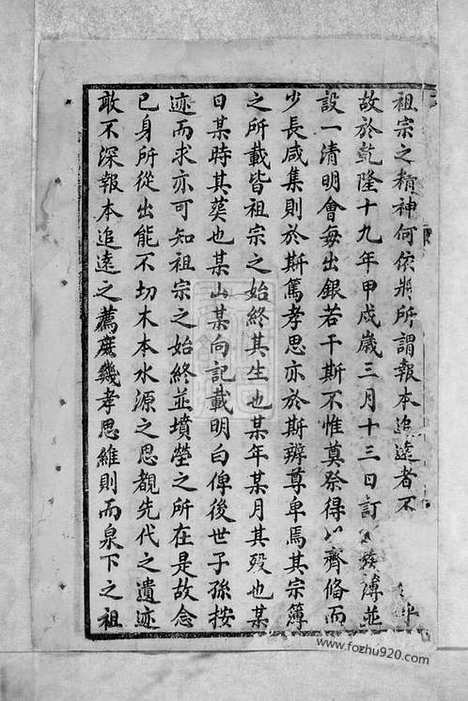 祖宗之精神何依將所謂報本追遠者不
故於乾隆十九年甲戌歲三月十三日訂族簿並
設一清明會每出銀若干斯不惟奠祭得以齊備而
少長咸集則於斯篤孝思亦於斯辨尊卑焉其宗簿
之所載皆祖宗之始終其生也某年某月其歿也某
日某時其葵也某山某向記載明白俾後世子孫按
迹而求亦可知祖宗之始終並墳塋之所在是故念
已身所從出能不切木本水源之思覩先代之遺迹
敢不深報本追遠之薦庶幾孝思維則而泉下之祖
www.fozhu920.com